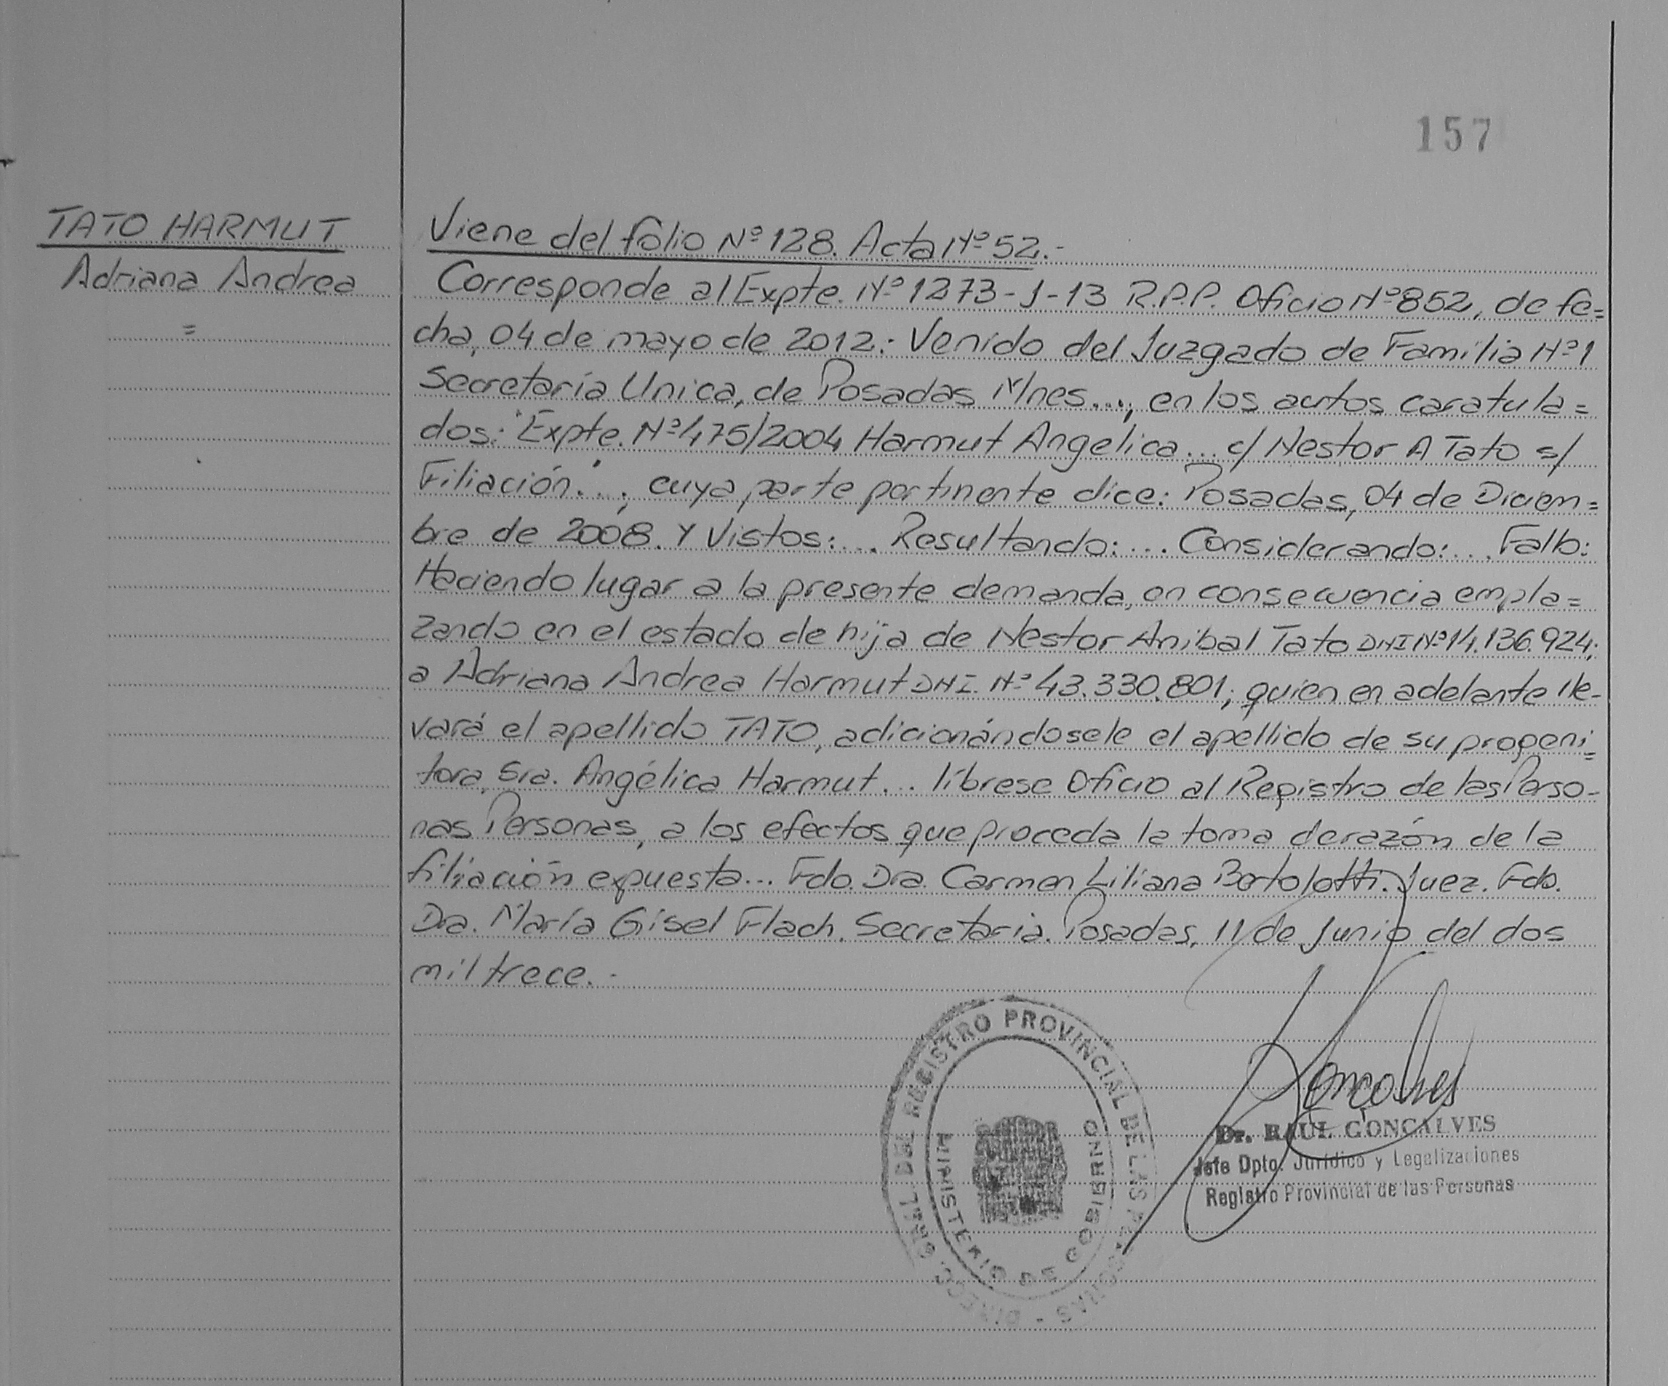 157
TATO HARMUT
Adriana Andrea
=
Viene del folio Nº 128. Acta Nº 52.-
Corresponde al Expte. Nº 1273-J-13 R.P.P. Oficio Nº 852, de fe=
cha, 04 de mayo de 2012.- Venido del Juzgado de Familia Nº 1
Secretaría Unica, de Posadas Mnes..., en los autos caratula=
dos: "Expte. Nº 475/2004 Harmut Angelica... c/ Nestor A Tato s/
Filiación"..., cuya parte pertinente dice: Posadas, 04 de Diciem=
bre de 2008. Y Vistos:... Resultando:... Considerando:... Fallo:
Haciendo lugar a la presente demanda, en consecuencia empla=
zando en el estado de hija de Nestor Anibal Tato DNI Nº 14.136.924;
a Adriana Andrea Harmut DNI. Nº 43.330.801; quien en adelante lle-
vará el apellido TATO, adicionándosele el apellido de su progeni=
tora, Sra. Angélica Harmut... líbrese Oficio al Registro de las Perso-
nas Personas, a los efectos que proceda la toma de razón de la
filiación expuesta... Fdo. Dra. Carmen Liliana Bertolotti. Juez. Fdo.
Dra. María Gisel Flach. Secretaria. Posadas, 11 de Junio del dos
mil trece.-
DIRECC. GRAL. DEL REGISTRO PROVINCIAL DE LAS PERSONAS -
MINISTERIO DE GOBIERNO
Dr. RAUL GONÇALVES
Jefe Dpto. Jurídico y Legalizaciones
Registro Provincial de las Personas